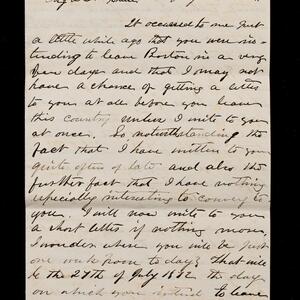 It occured to me just
a little while ago that you were in-
tending to leave Boston in a very
few days and that I may not
have a chance of getting a letter
to you at all before you leave
this country unless I write to you
at once. So notwithstanding the
fact that I have written to you
quite often of late and also the
further fact that I have nothing
especially interesting to convey to
you. I will now write to you
a short letter if nothing more.
I wonder where you will be just
one week from to day? that will
be the 27th of July 1882. the day
on which you intend to leave